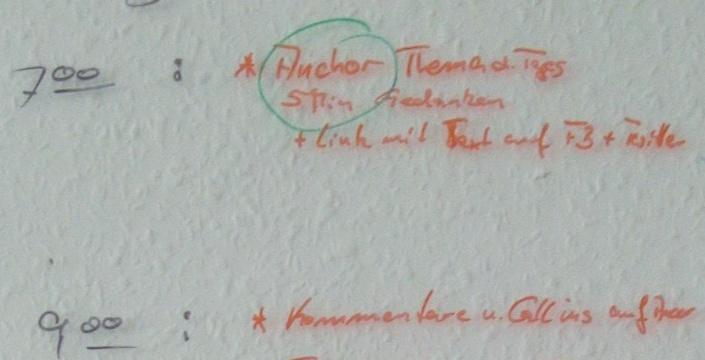 7 00 : * Anchor Thema d. Tages
5 Min Gedanken
+ Link mit Text auf F3 + Twitter
9 00 : * Kommentare u. Call ins auf